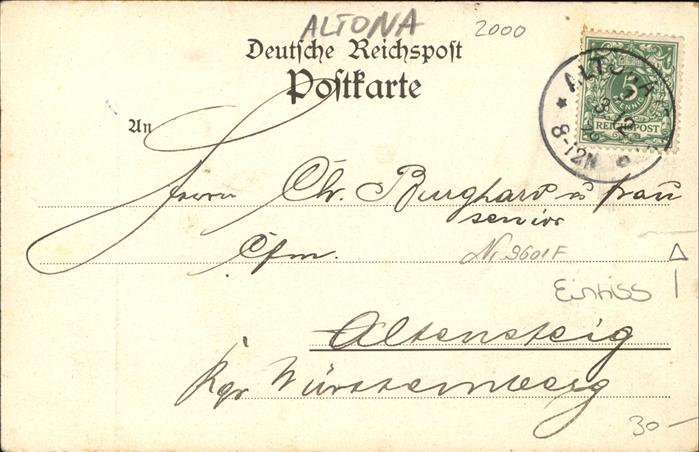 ALTONA
2000
Deutsche Reichspost
Postkarte
ALTONA
8-12N
5
PFENNIG
REICHSPOST
An
Herrn Chr. Burghard u frau
senior
Cfm.
Nr 9601F
Einriss
Altensteig
Kgr Württemberg
30-